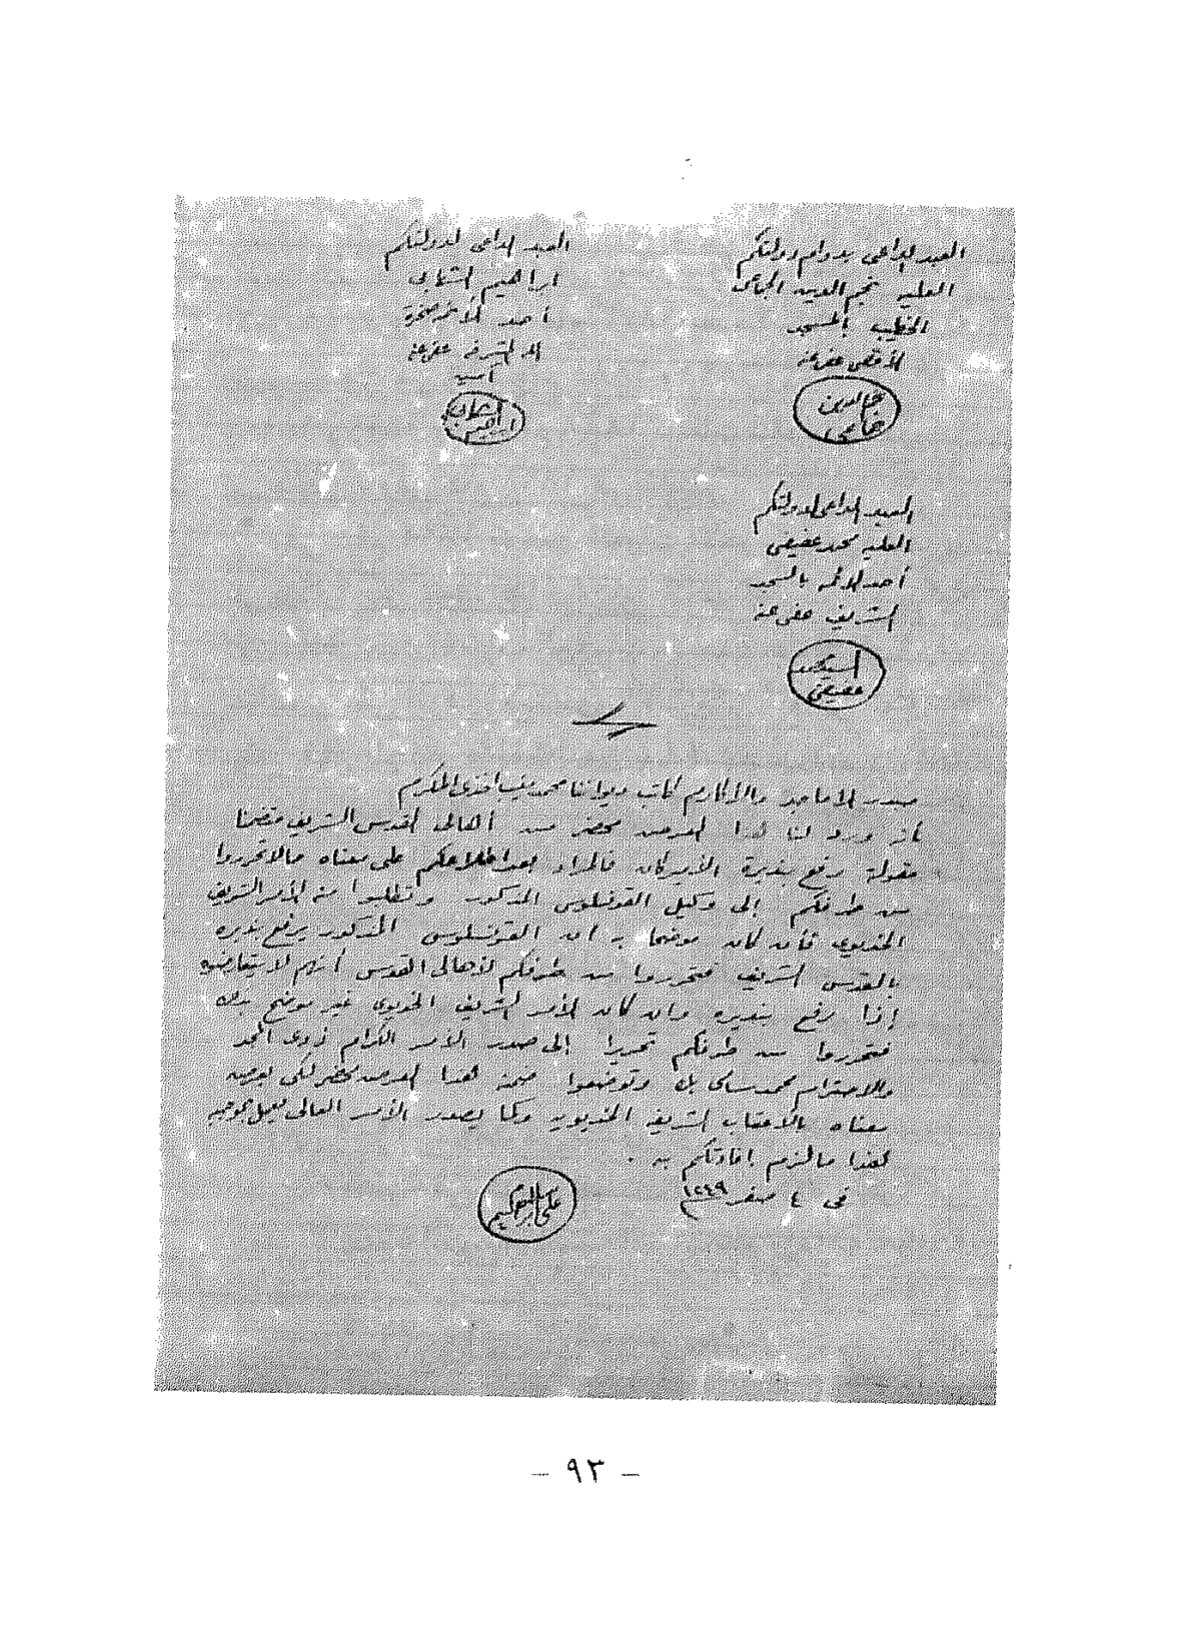 العبد الداعي بدوام دولتكم
العليه نجم الدين الجماعى
الخطيب بالمسجد
الأقصى عفى عنه
العبد الداعى لدولتكم
ابراهيم الشهابى
أحد
عفى عنه
أمين
الشهابى
ابراهيم
العبد الداعى لدولتكم
العليه محمد عفيفى
أحد الائمه بالمسجد
الشريف عفى عنه
السيد محمد
عفيفى
صدر الاماجد والاكارم كاتب ديواننا محمد افندى المكرم
ورد لنا هذا العرض محضر من أهالى القدس الشريف متضمنا
مقولة رفع بنديرة الأمريكان فالمراد بعد اطلاعكم على معناه حالا تحرروا
من طرفكم إلى وكيل القونسلوس المذكور وتطلبوا منه الأمر الشريف
الخديوي فأن كان موضحا به ان القونسلوس المذكور يرفع بنديره
بالقدس الشريف فتحرروا من طرفكم لأهالى القدس أنهم لا يتعارضوه
إذا رفع بنديره وان كان الأمر الشريف الخديوى غير موضح بذلك
فتحرروا من طرفكم تحريرا إلى صدر الأمر الكرام ذوى المجد
والاحترام محمد سامى بك وتوضعوا ضمنه هذا العرض محضر لكى يعرض
معناه بالاعتاب الشريفه الخديويه وكما يصدر الأمر العالى نعمل بموجبه
لهذا ما لزم افادتكم به .
فى ٤ صفر ١٢٤٩
على
ابراهيم
– ٩٣ –